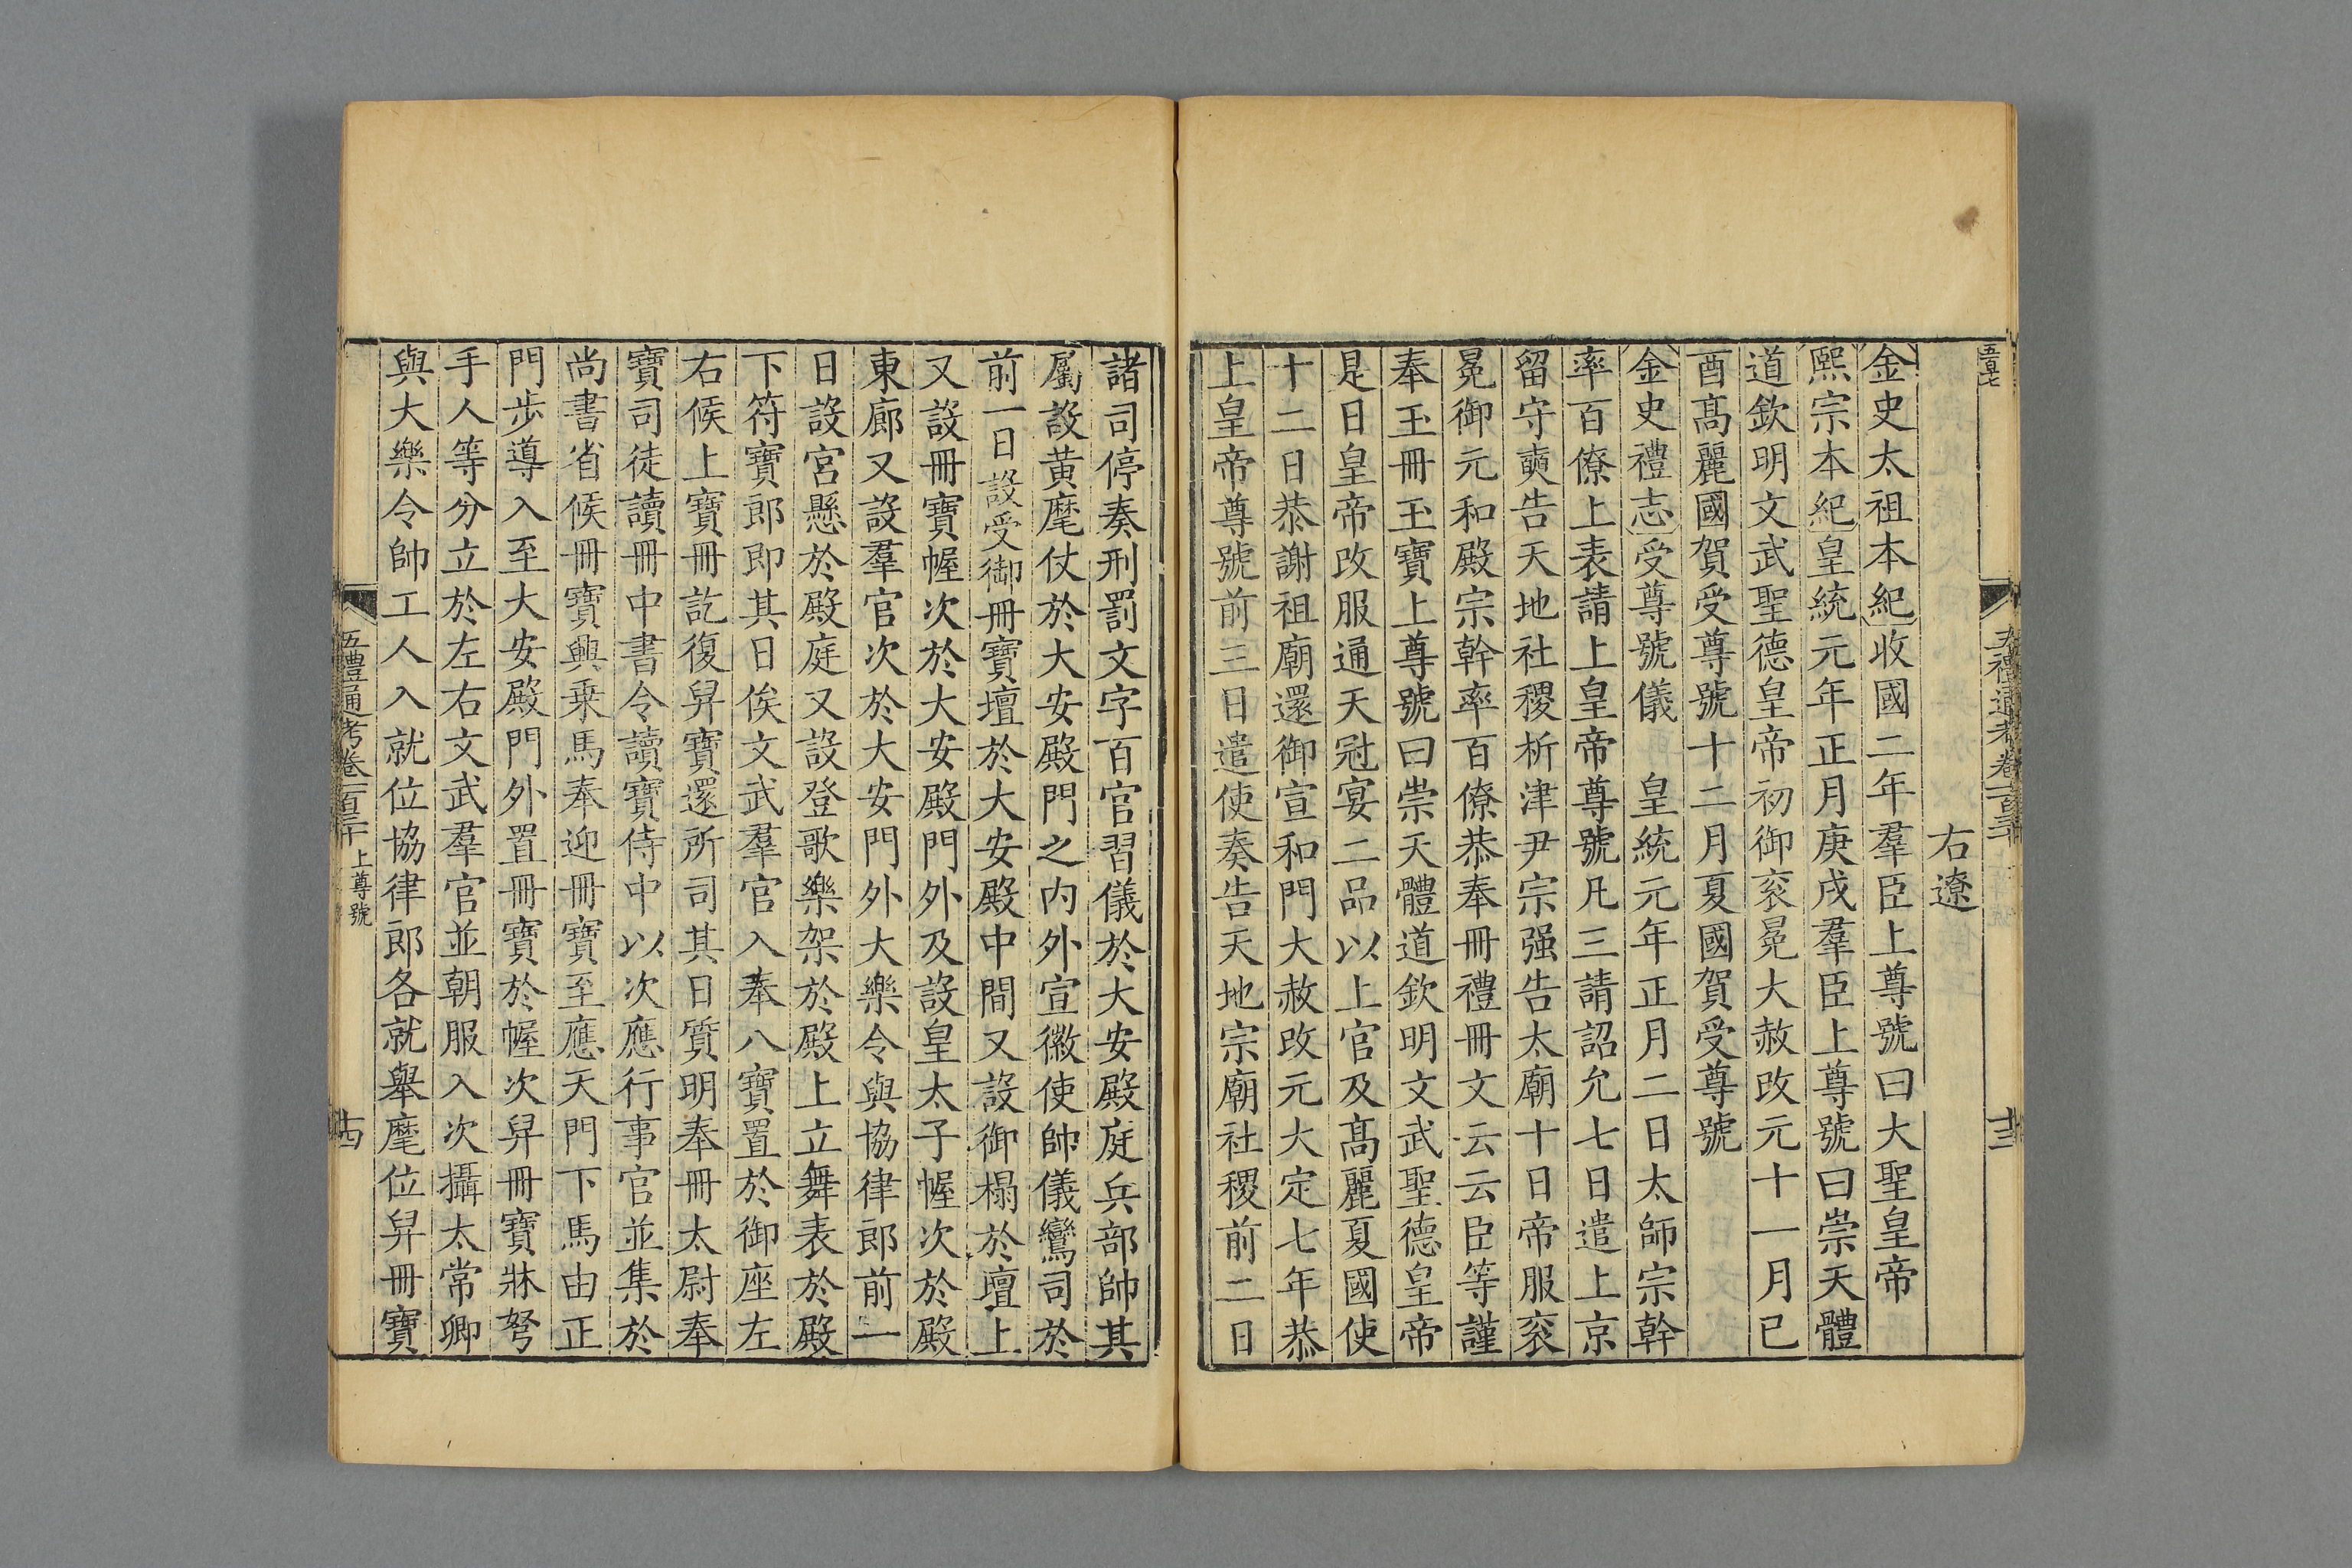 右遼
金史太祖本紀收國二年羣臣上尊號曰大聖皇帝
熙宗本紀皇統元年正月庚戌羣臣上尊號曰崇天體
道欽明文武聖德皇帝初御衮冕大赦改元十一月已
酉髙麗國賀受尊號十二月夏國賀受尊號
金史禮志受尊號儀 皇統元年正月二日太師宗幹
率百僚上表請上皇帝尊號凡三請詔允七日遣上京
留守奭告天地社稷析津尹宗强告太廟十日帝服衮
冕御元和殿宗幹率百僚恭奉冊禮冊文云云臣等謹
奉玉冊玉寶上尊號曰崇天體道欽明文武聖德皇帝
是日皇帝改服通天冠宴二品以上官及髙麗夏國使
十二日恭謝祖廟還御宣和門大赦改元大定七年恭
上皇帝尊號前三日遣使奏告天地宗廟社稷前二日
諸司停奏刑罰文字百官習儀於大安殿庭兵部帥其
屬設黄麾仗於大安殿門之内外宣徽使帥儀鸞司於
前一日設受御冊寶壇於大安殿中間又設御榻於壇上
又設冊寶幄次於大安殿門外及設皇太子幄次於殿
東廊又設羣官次於大安門外大樂令與協律郎前一
日設宮懸於殿庭又設登歌樂架於殿上立舞表於殿
下符寶郎即其日俟文武羣官入奉八寶置於御座左
右候上寶冊訖復舁寶還所司其日質明奉冊太尉奉
寶司徒讀冊中書令讀寶侍中以次應行事官並集於
尚書省候冊寶輿乗馬奉迎冊寶至應天門下馬由正
門步導入至大安殿門外置冊寶於幄次舁冊寶牀弩
手人等分立於左右文武羣官並朝服入次攝太常卿
與大樂令帥工人入就位協律郎各就舉麾位舁冊寶
五禮通考卷一百三十 上尊號
十四